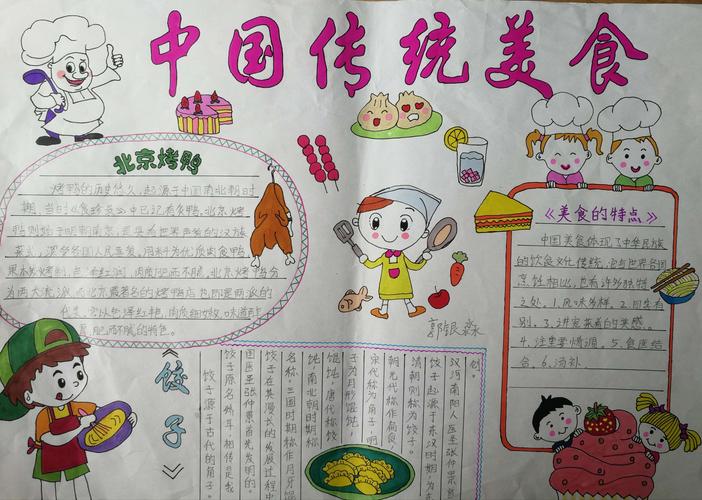 中国传统美食
北京烤鸭
烤鸭的历史悠久,起源于中国南北朝时
期,当时《食珍录》中已记有炙鸭.北京烤
鸭则始于明朝,是具有世界声誉的汉族
菜式,深受各国人民喜爱.用料为优质肉食鸭
果木炭烤制,色泽红润,肉质肥而不腻.北京烤鸭分
为两大流派,而北京最著名的烤鸭店也即是两派的
代表.它以色泽红艳,肉质细嫩,味道
肥而不腻的特色.
《美食的特点》
中国美食体现了中华民族
的饮食文化传统,它与世界各国
烹饪相比,也有许多独特
之处.1.风味多样.2.四季有
别.3.讲究菜肴的美感.
4.注重情调.5.食医结
合.6.汤补.
《饺子》
饺子源于古代的角子。
饺子原名娇耳相传是我
国医圣张仲景首先发明的。
饺子在其漫长的发展过程中
名称,三国时期称作月牙馄
饨,南北朝时期称
馄饨,唐代称饺
子为月形馄饨
宋代称为角子,明
朝元代称作扁食
清朝则称为饺子。
饺子起源于东汉时期为东
汉河南阳人医圣张仲景首
创。